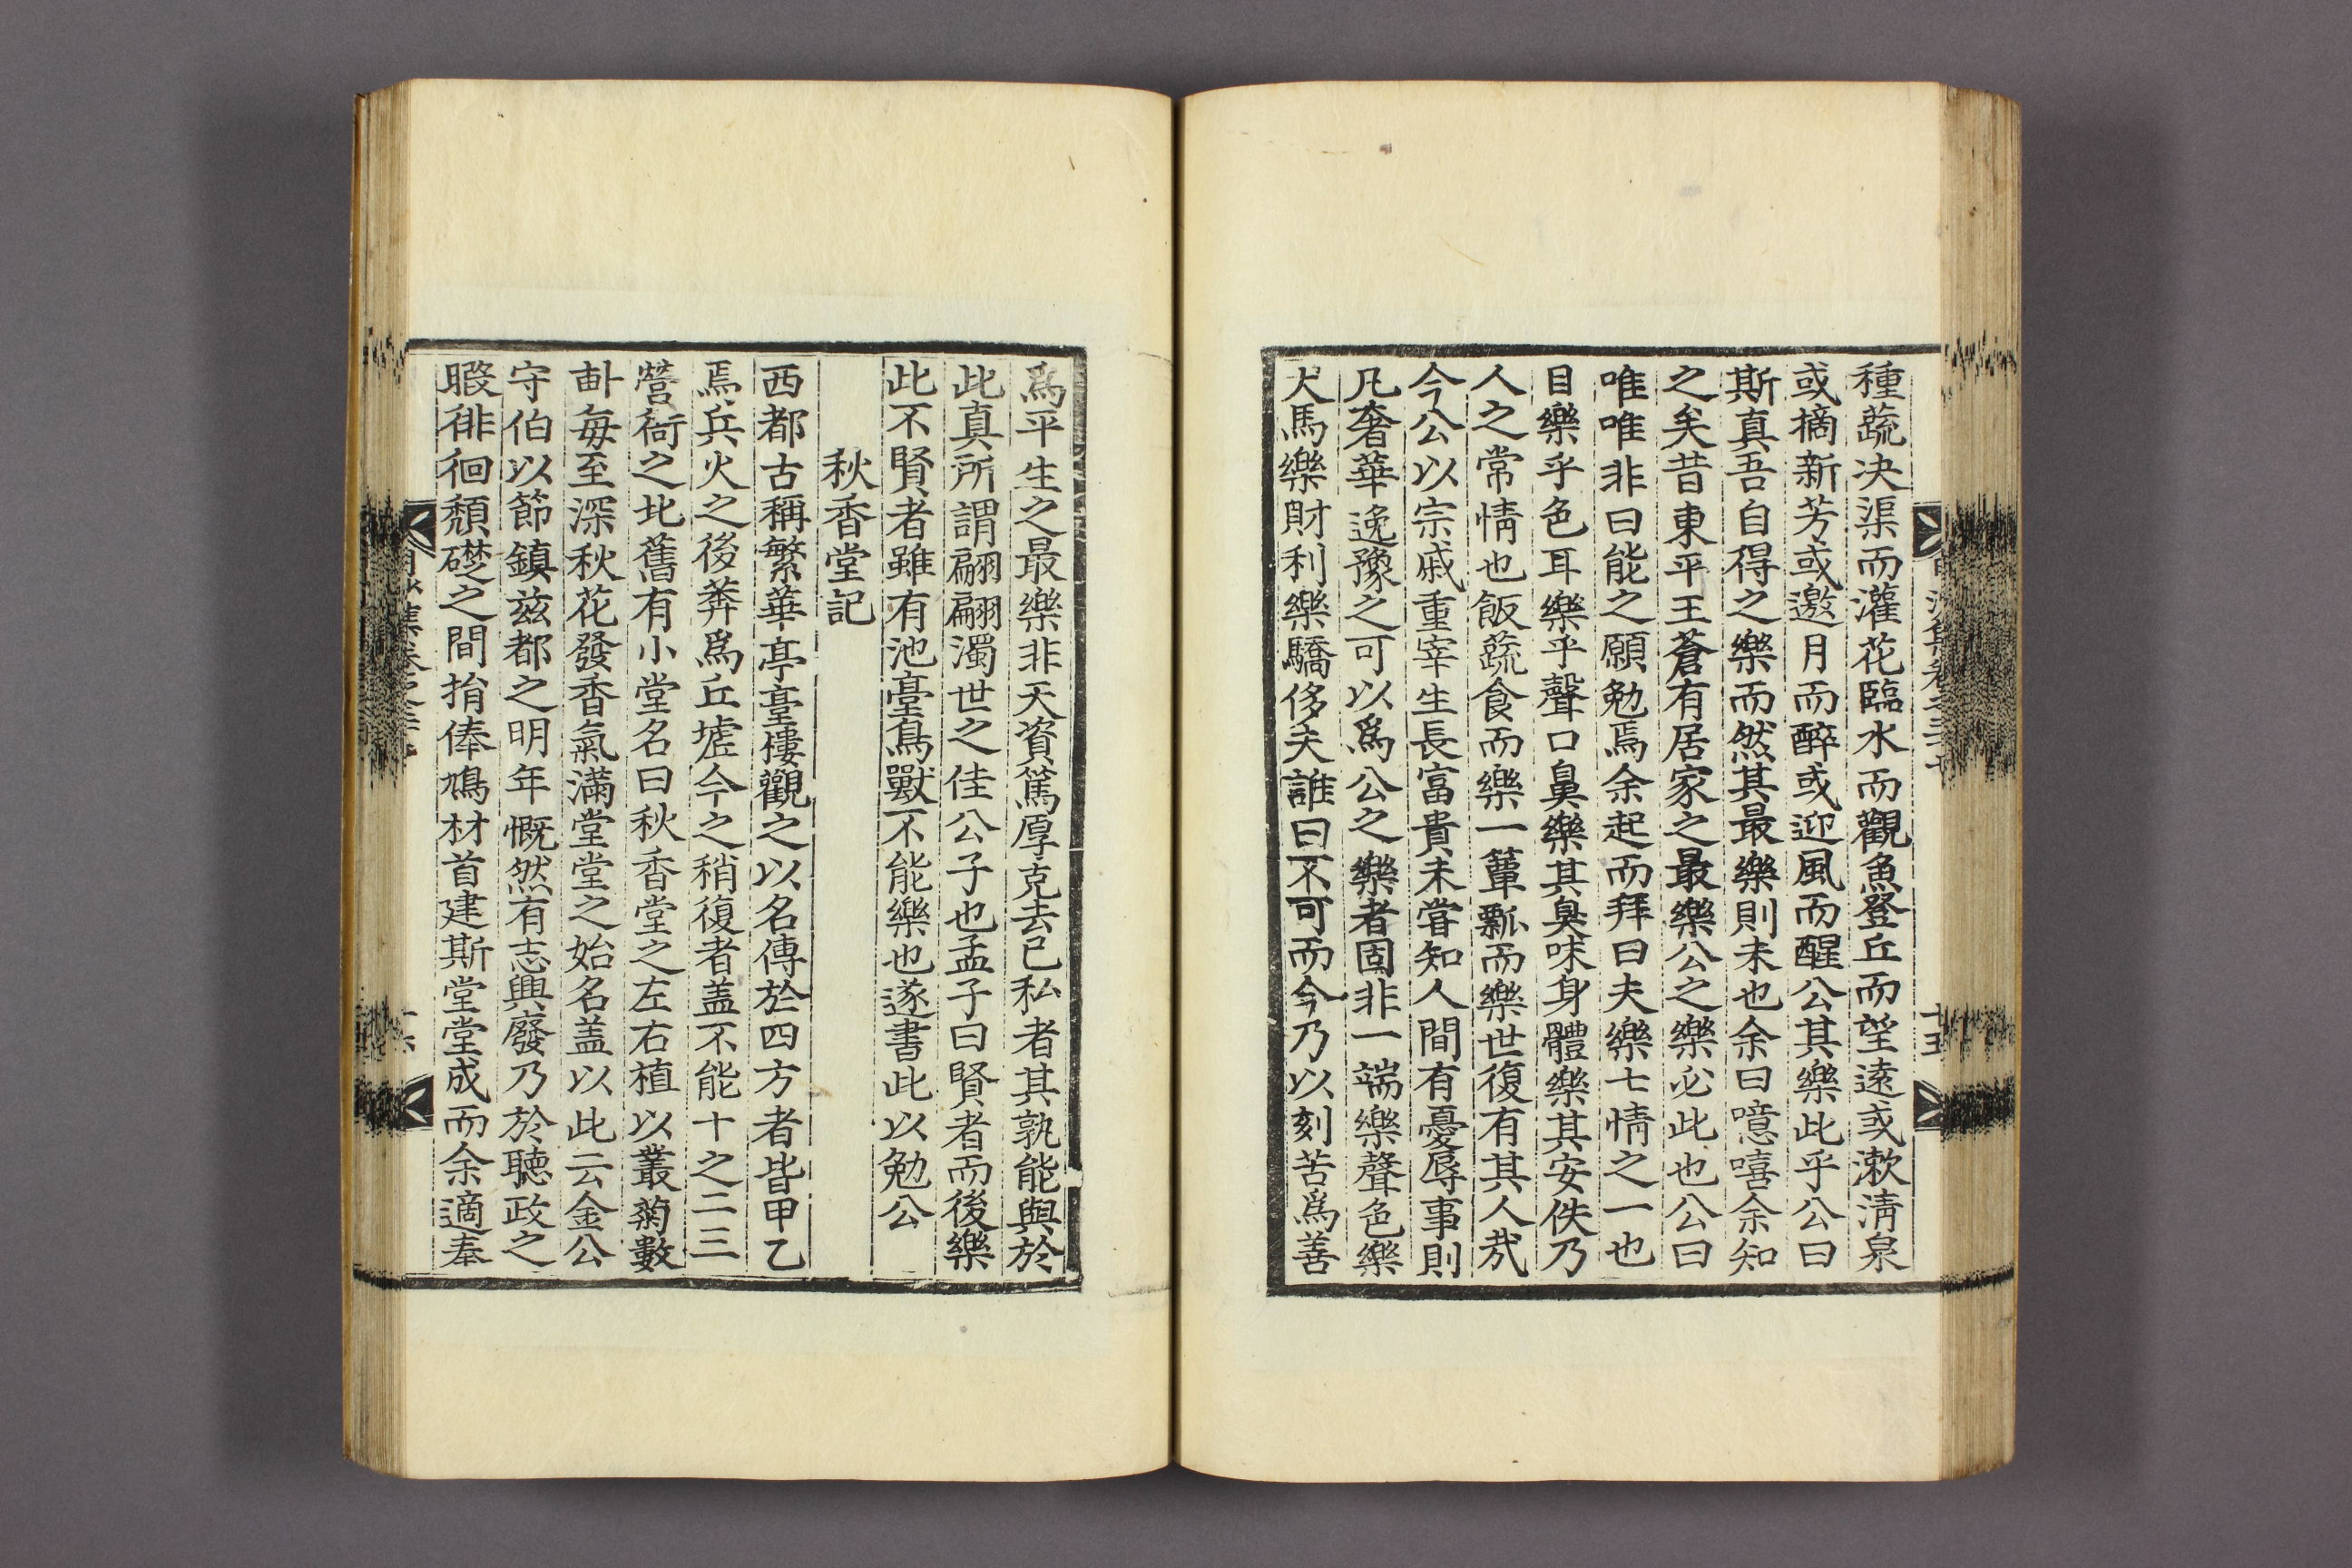 種蔬决渠而灌花臨水而觀魚登丘而望遠或漱淸泉
或摘新芳或邀月而醉或迎風而醒公其樂此乎公曰
斯真吾自得之樂而然其最樂則未也余曰噫嘻余知
之矣昔東平王蒼有居家之最樂公之樂必此也公曰
唯唯非曰能之願勉焉余起而拜曰夫樂七情之一也
目樂乎色耳樂乎聲口鼻樂其臭味身體樂其安佚乃
人之常情也飯蔬食而樂一簞瓢而樂世復有其人㢤
今公以宗戚重宰生長富貴未嘗知人間有憂辱事則
凡奢華逸豫之可以爲公之樂者固非一端樂聲色樂
犬馬樂財利樂驕侈夫誰曰不可而今乃以刻苦爲善
爲平生之最樂非天資篤厚克去己私者其孰能與於
此真所謂翩翩濁世之佳公子也孟子曰賢者而後樂
此不賢者雖有池臺鳥獸不能樂也遂書此以勉公
秋香堂記
西都古稱繁華亭臺樓觀之以名傳於四方者皆甲乙
焉兵火之後莽爲丘墟今之稍復者盖不能十之二三
營衙之北舊有小堂名曰秋香堂之左右植以叢菊數
卧每至深秋花發香氣滿堂堂之始名盖以此云金公
守伯以節鎭兹都之明年慨然有志興廢乃於聽政之
暇徘徊頹礎之間捐俸鳩材首建斯堂堂成而余適奉